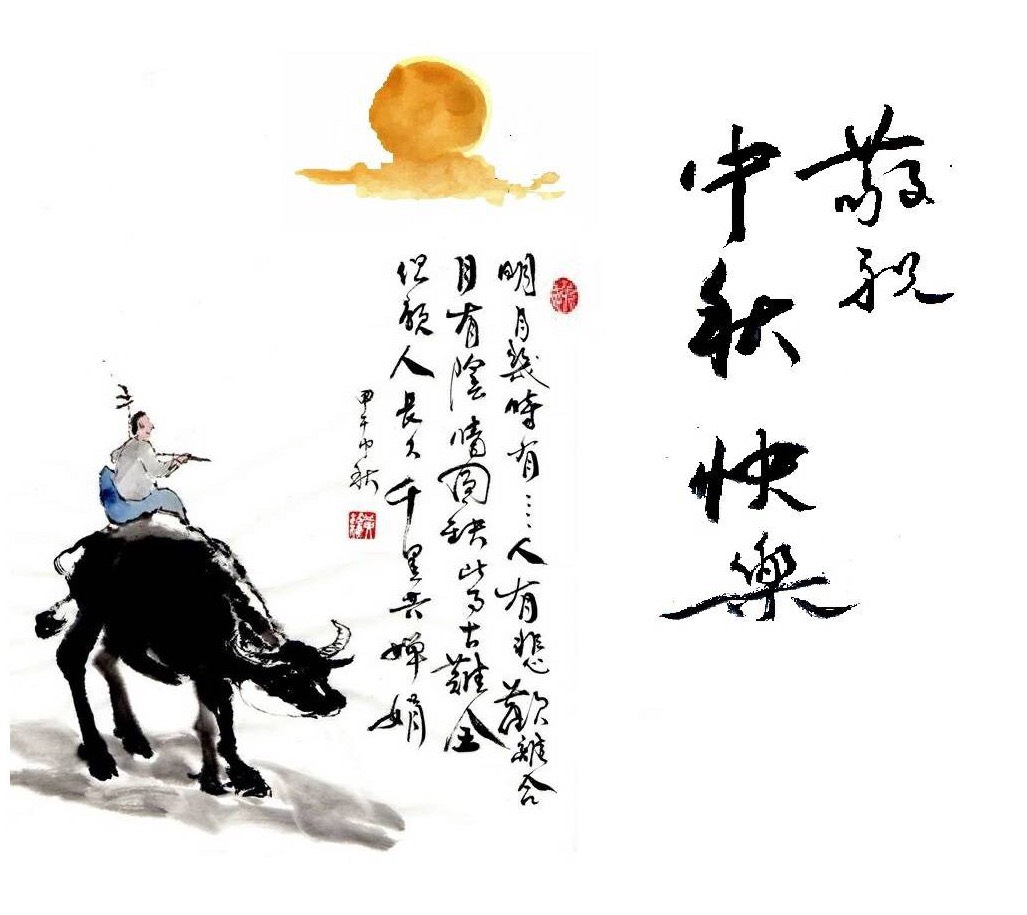 敬祝
中秋快樂
明月幾時有⋯⋯人有悲歡離合
月有陰晴圓缺此事古難全
但願人長久千里共嬋娟
甲午中秋